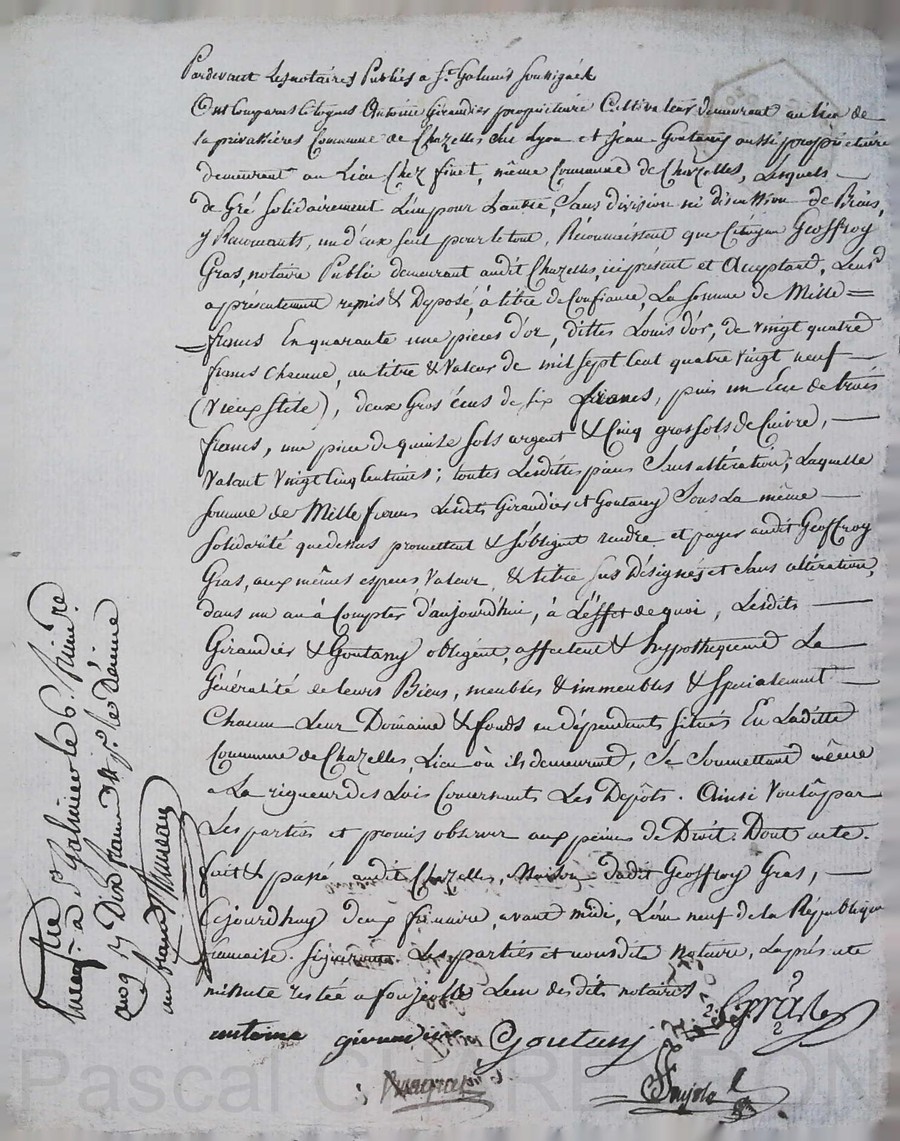 Pardevant les notaires Publics a St. Galmier soussignés
Ont Comparus Citoyens Antoine Girandier propriétaire Cultivateur demeurant au lieu de
la privattières Commune de Chazelles sur Lyon et Jean Goutany aussi propriétaire
demeurant au Lieu Chez finet, même Commune de Chazelles, Lesquels
de Gré solidairement L'un pour L'autre, sans division ni discussion de Biens,
y Renonçants, un d'eux seul pour le tout, Reconnaissent que Citoyen Geoffroy
Gras, notaire Public demeurant audit Chazelles, ici present et Acceptant, Leur
a présentement remis & Déposé, à titre de Confiance, La somme de Mille =
= francs En quarante une pieces d'or, dittes Louis d'or, de vingt quatre
francs chacune, au titre & Valeur de mil sept Cent quatre vingt neuf
(Vieux stile), deux Gros écus de six francs, puis un Ecu de trois
francs, une piece de quinze sols argent & Cinq gros sols de Cuivre,
Valant Vingt Cinq Centimes; toutes Lesdittes pieces sans altération; Laquelle
somme de Mille francs Lesdits Girandier et Goutany sous La même
solidarité que dessus promettent & s'obligent rendre et payer audit Geoffroy
Gras, aux mêmes especes Valeur, & titre sus Designés et sans altération,
dans un an à Compter d'aujourd'hui, à L'effet de quoi, Lesdits
Girandier & Goutany obligent, affectent & hypothequent La
Généralité de leurs Biens, meubles & immeubles & spécialement
Chacun Leur Domaine & fonds en dépendants situés En Laditte
Commune de Chazelles, Lieu où ils demeurent, se soumettant même
a La rigueur des Lois Concernants Les Depôts. Ainsi Voulû par
Les parties et promis observer aux peines de Droit. Dont acte.
fait & passé audit Chazelles, Maison dudit Geoffroy Gras,
Cejourdhuy deux frimaire, avant midi, L'an neuf de la République
française. signeront Les parties et nousdits notaires, La présente
minute restée a foujols L'un des dits notaires
antoine girandier Goutany Gras
foujols
Enregtré à St. Galmier le 6. frimre
an 9